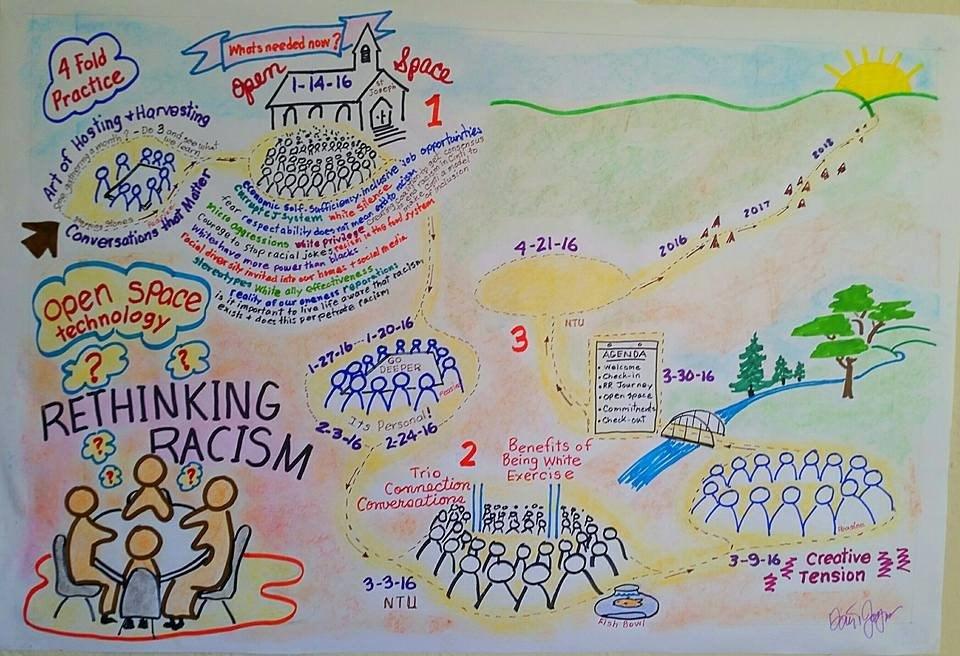 4 Fold
Practice
Whats needed now?
Open Space
1-14-16
St
Joseph
1
Art of Hosting + Harvesting
One gathering a month? - Do 3 and see what
we learn
Conversations that Matter
economic Self-Sufficiency-inclusive job opportunities
Corrupt J System white Silence
fear respectability does not mean exit to racism
micro aggressions white privilege
Courage to Stop racial jokes racism in the food system
whites have more power than blacks
racial diversity invited into our homes + social media
Stereotypes White ally effectiveness
reality of our oneness reparations
is it important to live life aware that racism
exist + does this perpetrate racism
open Space
technology
?
?
RETHINKING
RACISM
?
?
?
1-27-16 1-20-16
GO
DEEPER
People
Its Personal!
2-3-16 2-24-16
2
Trio
Connection
Conversations
Benefits of
Being White
Exercise
3-3-16
NTU
Fish Bowl
3-9-16 Creative
Tension
AGENDA
• Welcome
• Check-in
• RR Journey
• open Space
• Commitments
• Check-out
3-30-16
3
NTU
4-21-16
2016
2017
2018